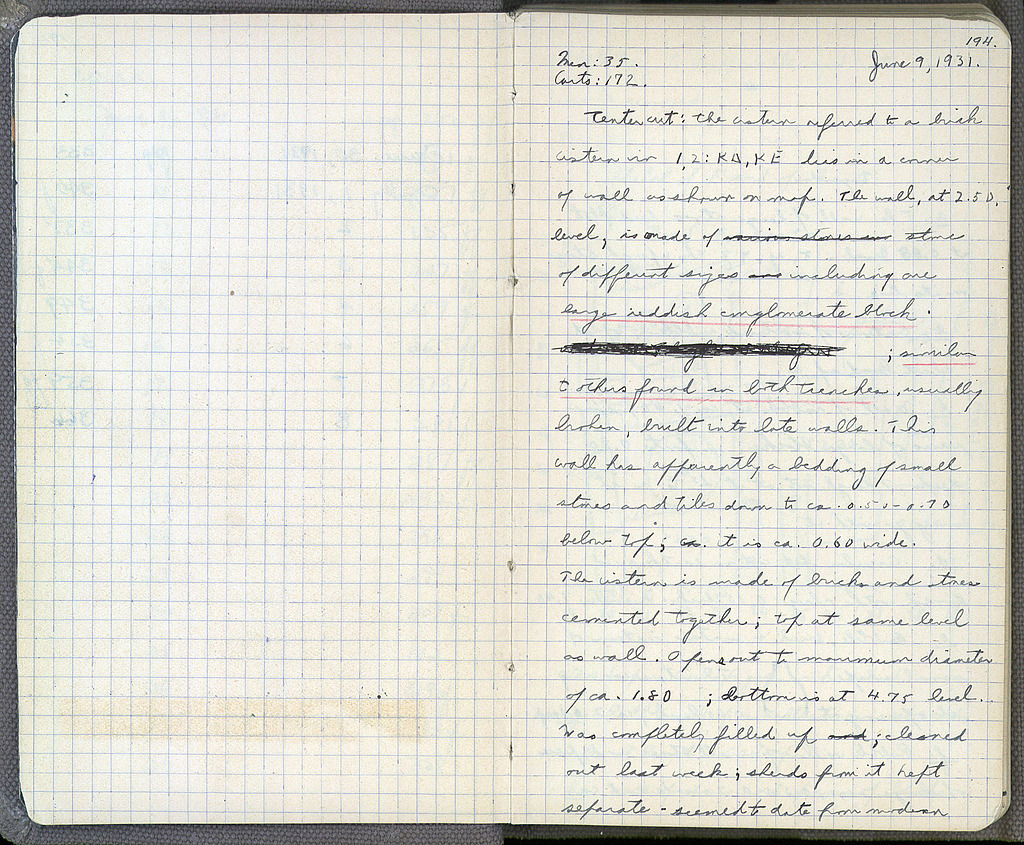 194.
Men: 35.
June 9, 1931.
Carts: 172.
Center cut: The cistern referred to a brick
cistern in 1,2: KΔ, KE lies in a corner
of wall as shown on map. The wall, at 2.50.
level, is made of various stones in stone
of different sizes including one
large reddish conglomerate block.
; similar
to others found in both trenches, usually
broken, built into late walls. This
wall has apparently a bedding of small
stones and tiles down to ca. 0.50-0.70
below top; ca. it is ca. 0.60 wide.
The cistern is made of bricks and stones
cemented together; top at same level
as wall. Opens out to maximum diameter
of ca. 1.80 ; bottom is at 4.75 level.
Was completely filled up and; cleaned
out last week; sherds from it kept
separate - seemed to date from modern